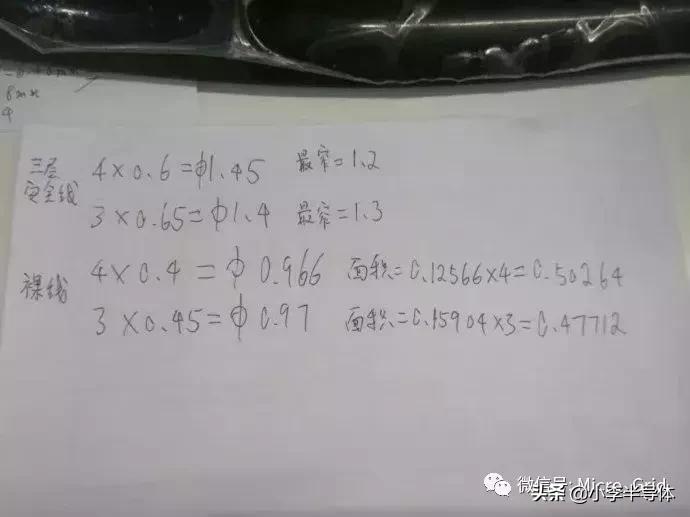 8mm
4
三层
安全线
4×0.6=φ1.45 最窄=1.2
3×0.65=φ1.4 最窄=1.3
裸线
4×0.4=φ0.966 面积=0.12566×4=0.50264
3×0.45=φ0.97 面积=0.15904×3=0.47712
微信号: Micro_Grid
头条 @小李半导体